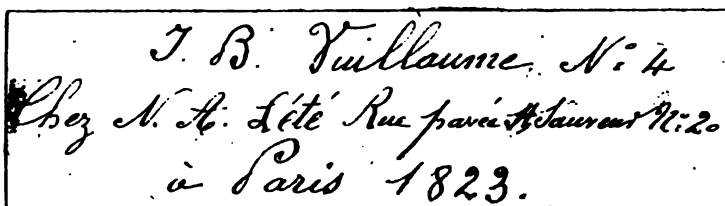 J. B. Vuillaume. No: 4
Chez N. A. Lété Rue pavée St Sauveur No: 20
à Paris 1823.